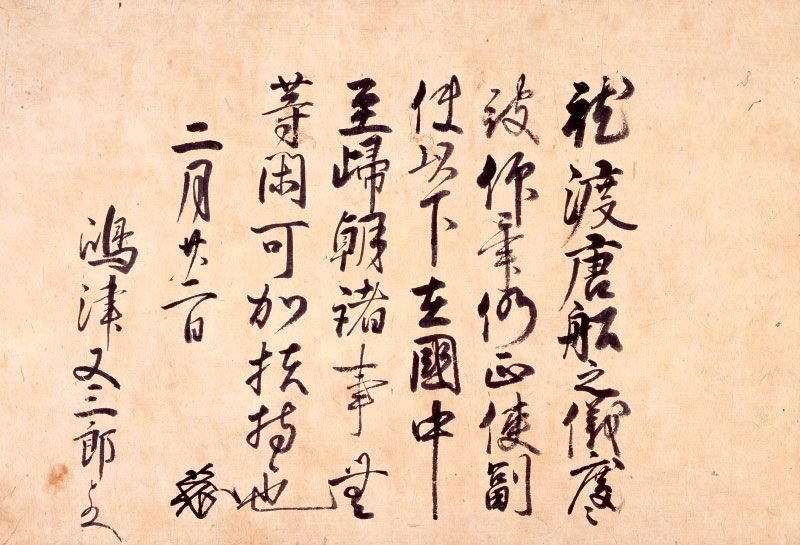 就渡唐船之儀度々
被仰畢仍正使副
使以下在國中
至歸朝諸事無
等閑可加扶持也
二月廿二日
嶋津又三郎とのへ